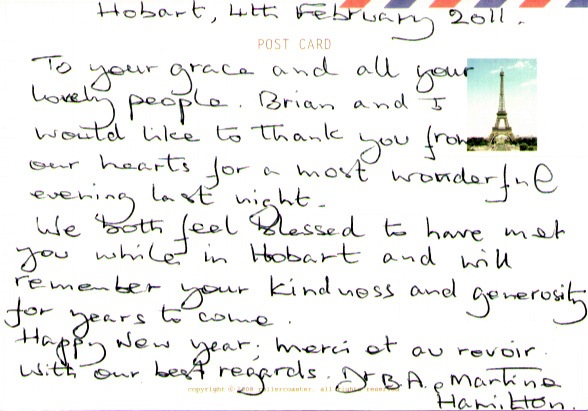 Hobart, 4th February 2011.
POST CARD
To your grace and all your
lovely people. Brian and I
would like to thank you from
our hearts for a most wonderful
evening last night.
We both feel blessed to have met
you while in Hobart and will
remember your kindness and generosity
for years to come.
Happy New year; merci et au revoir.
With our best regards. Dr B.A. e Martine
copyright © 2008 rollercoaster. all rights reserved
Hamilton.